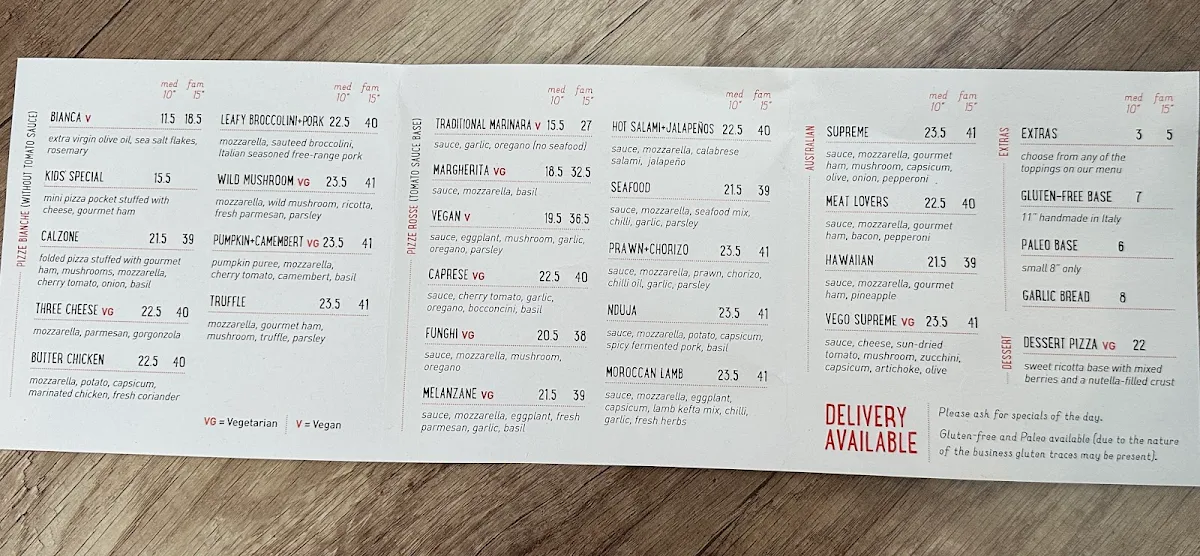 PIZZE BIANCHE (WITHOUT TOMATO SAUCE)
med fam
10" 15"
BIANCA V 11.5 18.5
extra virgin olive oil, sea salt flakes,
rosemary
KIDS' SPECIAL 15.5
mini pizza pocket stuffed with
cheese, gourmet ham
CALZONE 21.5 39
folded pizza stuffed with gourmet
ham, mushrooms, mozzarella,
cherry tomato, onion, basil
THREE CHEESE VG 22.5 40
mozzarella, parmesan, gorgonzola
BUTTER CHICKEN 22.5 40
mozzarella, potato, capsicum,
marinated chicken, fresh coriander
med fam
10" 15"
LEAFY BROCCOLINI+PORK 22.5 40
mozzarella, sauteed broccolini,
Italian seasoned free-range pork
WILD MUSHROOM VG 23.5 41
mozzarella, wild mushroom, ricotta,
fresh parmesan, parsley
PUMPKIN+CAMEMBERT VG 23.5 41
pumpkin puree, mozzarella,
cherry tomato, camembert, basil
TRUFFLE 23.5 41
mozzarella, gourmet ham,
mushroom, truffle, parsley
VG = Vegetarian V = Vegan
PIZZE ROSSE (TOMATO SAUCE BASE)
med fam
10" 15"
TRADITIONAL MARINARA V 15.5 27
sauce, garlic, oregano (no seafood)
MARGHERITA VG 18.5 32.5
sauce, mozzarella, basil
VEGAN V 19.5 36.5
sauce, eggplant, mushroom, garlic,
oregano, parsley
CAPRESE VG 22.5 40
sauce, cherry tomato, garlic,
oregano, bocconcini, basil
FUNGHI VG 20.5 38
sauce, mozzarella, mushroom,
oregano
MELANZANE VG 21.5 39
sauce, mozzarella, eggplant, fresh
parmesan, garlic, basil
med fam
10" 15"
HOT SALAMI+JALAPEÑOS 22.5 40
sauce, mozzarella, calabrese
salami, jalapeño
SEAFOOD 21.5 39
sauce, mozzarella, seafood mix,
chilli, garlic, parsley
PRAWN+CHORIZO 23.5 41
sauce, mozzarella, prawn, chorizo,
chilli oil, garlic, parsley
NDUJA 23.5 41
sauce, mozzarella, potato, capsicum,
spicy fermented pork, basil
MOROCCAN LAMB 23.5 41
sauce, mozzarella, eggplant,
capsicum, lamb kefta mix, chilli,
garlic, fresh herbs
AUSTRALIAN
med fam
10" 15"
SUPREME 23.5 41
sauce, mozzarella, gourmet
ham, mushroom, capsicum,
olive, onion, pepperoni
MEAT LOVERS 22.5 40
sauce, mozzarella, gourmet
ham, bacon, pepperoni
HAWAIIAN 21.5 39
sauce, mozzarella, gourmet
ham, pineapple
VEGO SUPREME VG 23.5 41
sauce, cheese, sun-dried
tomato, mushroom, zucchini,
capsicum, artichoke, olive
EXTRAS
med fam
10" 15"
EXTRAS 3 5
choose from any of the
toppings on our menu
GLUTEN-FREE BASE 7
11" handmade in Italy
PALEO BASE 6
small 8" only
GARLIC BREAD 8
DESSERT
DESSERT PIZZA VG 22
sweet ricotta base with mixed
berries and a nutella-filled crust
DELIVERY
AVAILABLE
Please ask for specials of the day.
Gluten-free and Paleo available (due to the nature
of the business gluten traces may be present).